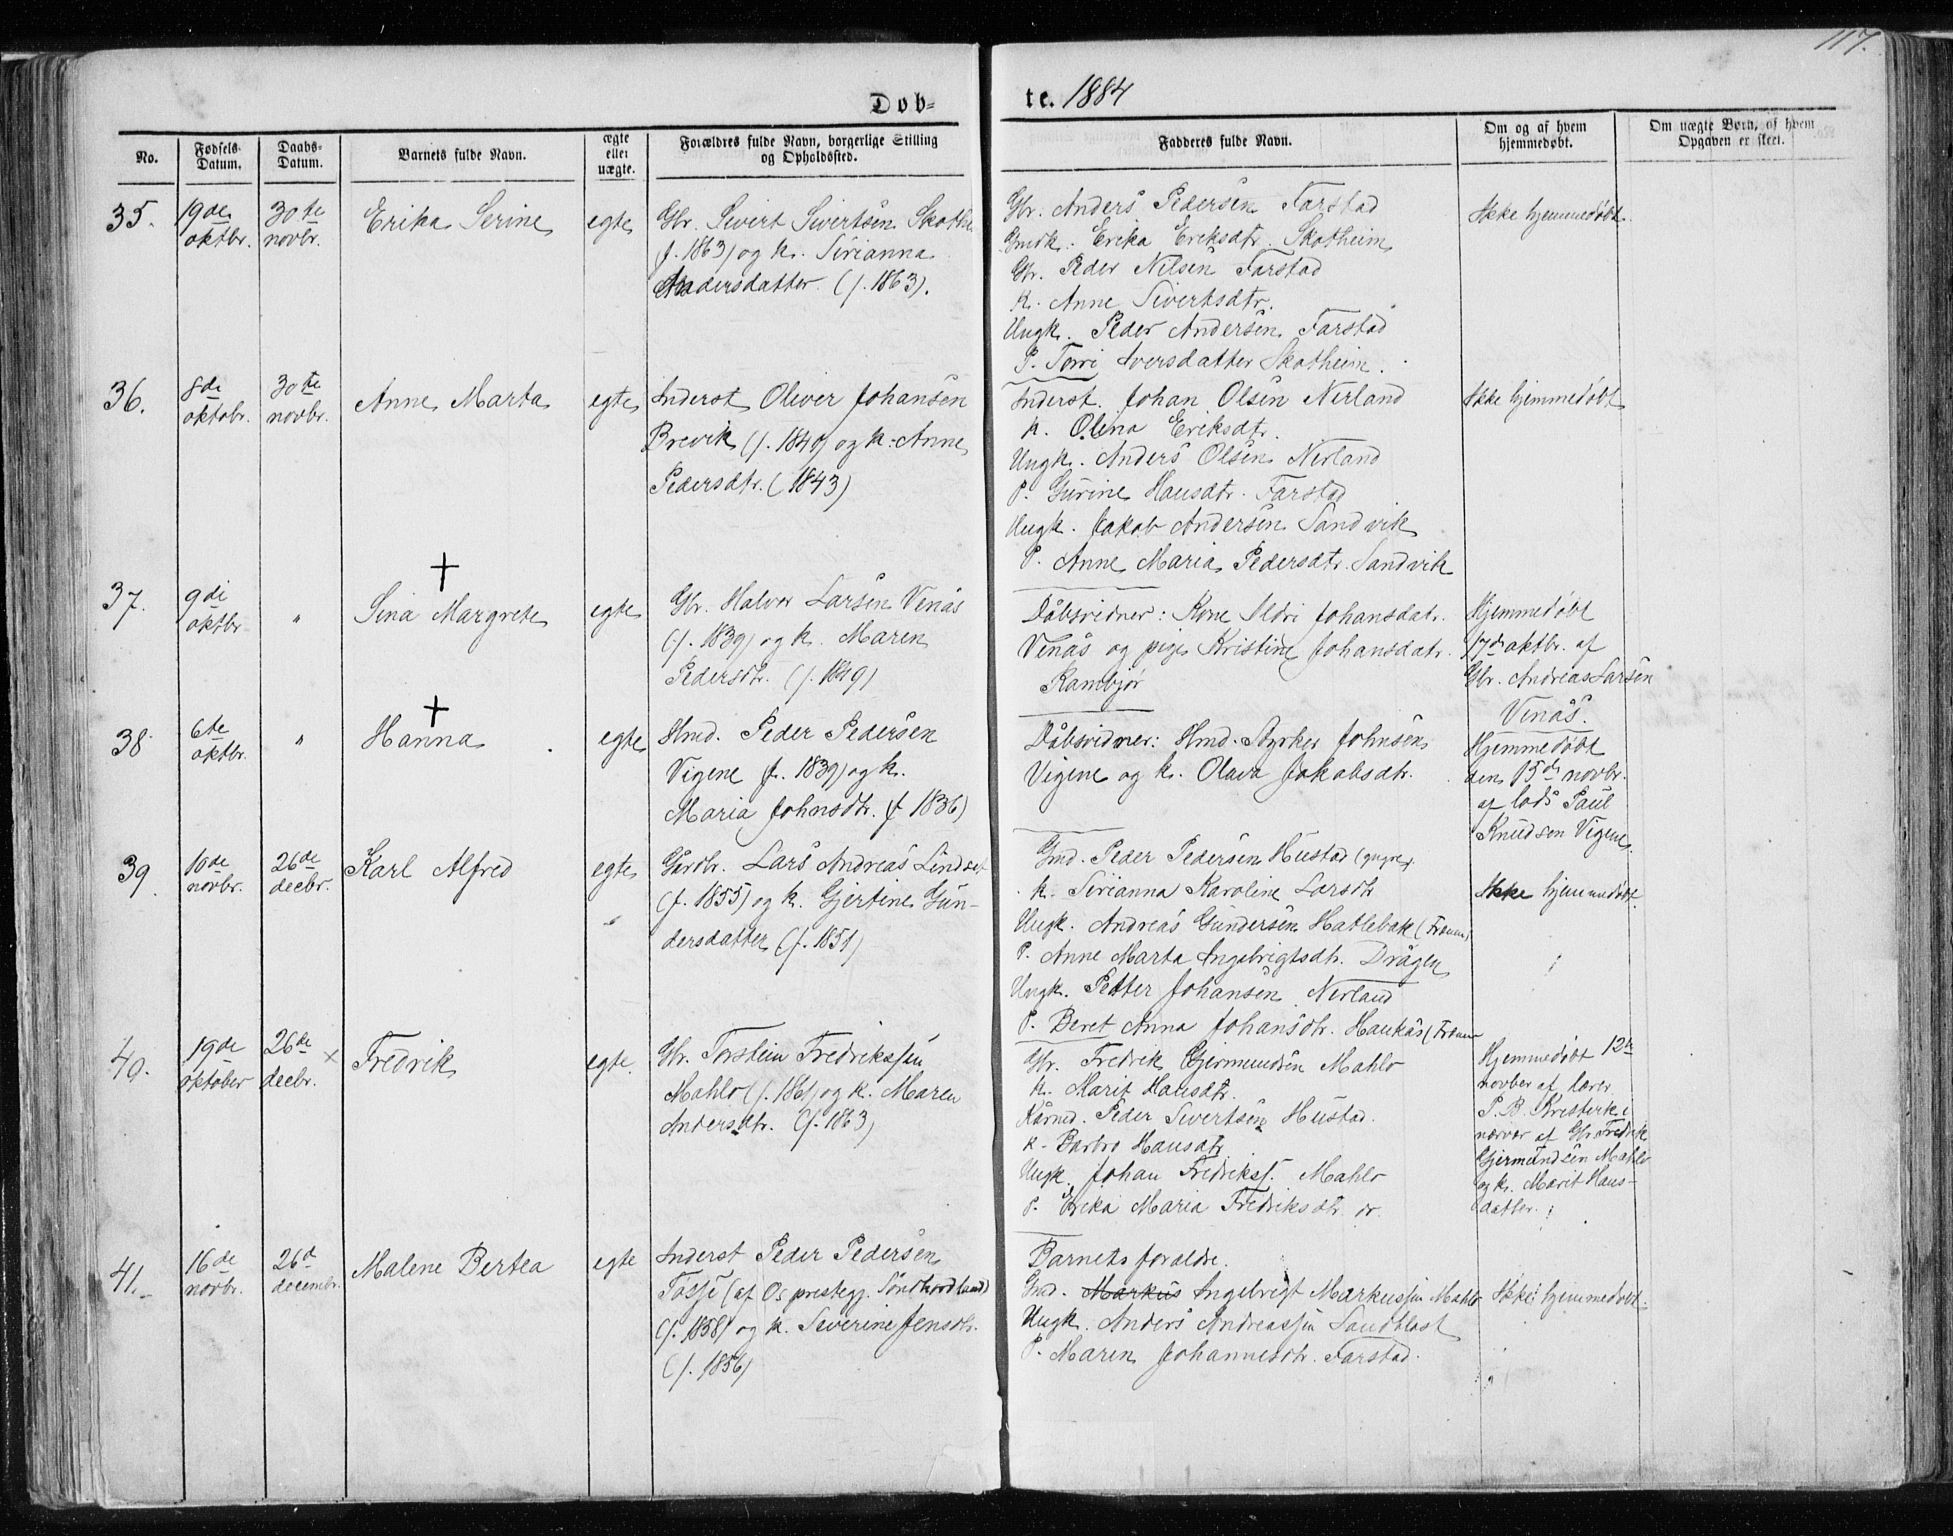 117.
Døb- te. 1884
No.
Fødsels-
Datum.
Daabs-
Datum.
Barnets fulde Navn.
ægte
eller
uægte.
Forældres fulde Navn, borgerlige Stilling
og Opholdssted.
Fadderes fulde Navn.
Om og af hvem
hjemmedøbt.
Om uægte Børn, af hvem
Opgaven er skeet.
35.
19de
oktbr.
30te
novbr.
Erika Serine
egte
Gbr. Sivert Sivertsen Skothe
(f. 1863) og k. Sirianna
Andersdatter (f. 1863).
Gbr. Anders Pedersen Farstad
Gmdk. Erika Eriksdtr. Skotheim
Gbr. Peder Nilsen Farstad
k. Anne Sivertsdtr.
Ungk. Peder Andersen Farstad
P. Iversdatter Skotheim.
Ikke hjemmedøbt
36.
8de
oktobr.
30te
novbr.
Anne Marta
egte
Inderst Oliver Johansen
Brevik (f. 1840) og k. Anne
Pedersdtr. (1843)
Inderst. Johan Olsen Nerland
k. Olina Eriksdtr.
Ungk. Anders Olsen Nerland
P. Gurine Hansdtr. Farstad
Ungk. Jakob Andersen Sandvik
P. Anne Maria Pedersdtr. Sandvik
Ikke hjemmedøbt
37.
9de
oktbr
"
+
Sina Margrete
egte
Gbr. Halvor Larsen Venås
(f. 1839) og k. Maren
Pedersdtr. (f. 1849)
Dåbsvidner: Kone Ildri Johansdatr.
Venås og pige Kristine Johansdatr.
Rambjør
Hjemmedøbt
17de oktbr. af
Gbr. Andreas Larsen
Venås.
38
6te
oktbr.
"
+
Hanna
egte
Hmd. Peder Pedersen
Vigene f. 1839) og k.
Maria Johnsdtr. (f 1836)
Dåbsvidner: Hmd. Styrker Johnsen
Vigene og k. Olava Jakobsdtr.
Hjemmedøbt
den 15de novbr.
af lods Paul
Knudsen Vigene.
39
10de
novbr.
26de
decbr.
Karl Alfred
egte
Gårdbr. Lars Andreas Lindset
(f. 1855) og k. Gjertine Gun-
dersdatter (f. 1851)
Gmd. Peder Pedersen Hustad
k. Sirianna Karoline Larsdtr
Ungk. Andreas Gundersen Hatlebak (Frænen)
P. Anne Marta Ingebrigtsdtr. Drågen
Ungk. Petter Johansen Nerland
P. Beret Anna Johansdtr. Haukås (Frænen
Ikke hjemmedøbt.
40.
19de
oktober
26de
decbr.
×
Fredrik
egte.
Gbr. Torstein Fredrikssen
Mahlo (f. 1861) og k. Maren
Andersdtr. (f. 1863)
Gbr. Fredrik Gjermundsen Mahlo
k. Marit Hansdtr.
Kårmd. Peder Sivertsen Hustad.
k. Barbro Hansdtr
Ungk. Johan Fredrikss. Mahlo
P. Erika Maria Fredriksdtr
Hjemmedøbt 12te
novber af lærer
P. B. i
nærvær af Gbr Fredrik
Gjermundsen Mahlo
og k. Marit Hans-
datter.
41.
16de
novbr.
26d
decembr.
Malene Bertea
egte
Inderst Peder Pedersen
(af Os prestegj. Søndhordland)
(f. 1858) og k. Severine Jensdtr.
(f. 1856)
Barnets foraldre.
Gmd. Markus Ingebrigt Markussen Mahlo
Ungk. Anders Andreassen Sandblåst
P. Maren Johannesdtr. Farstad.
Ikke hjemmedøbt.